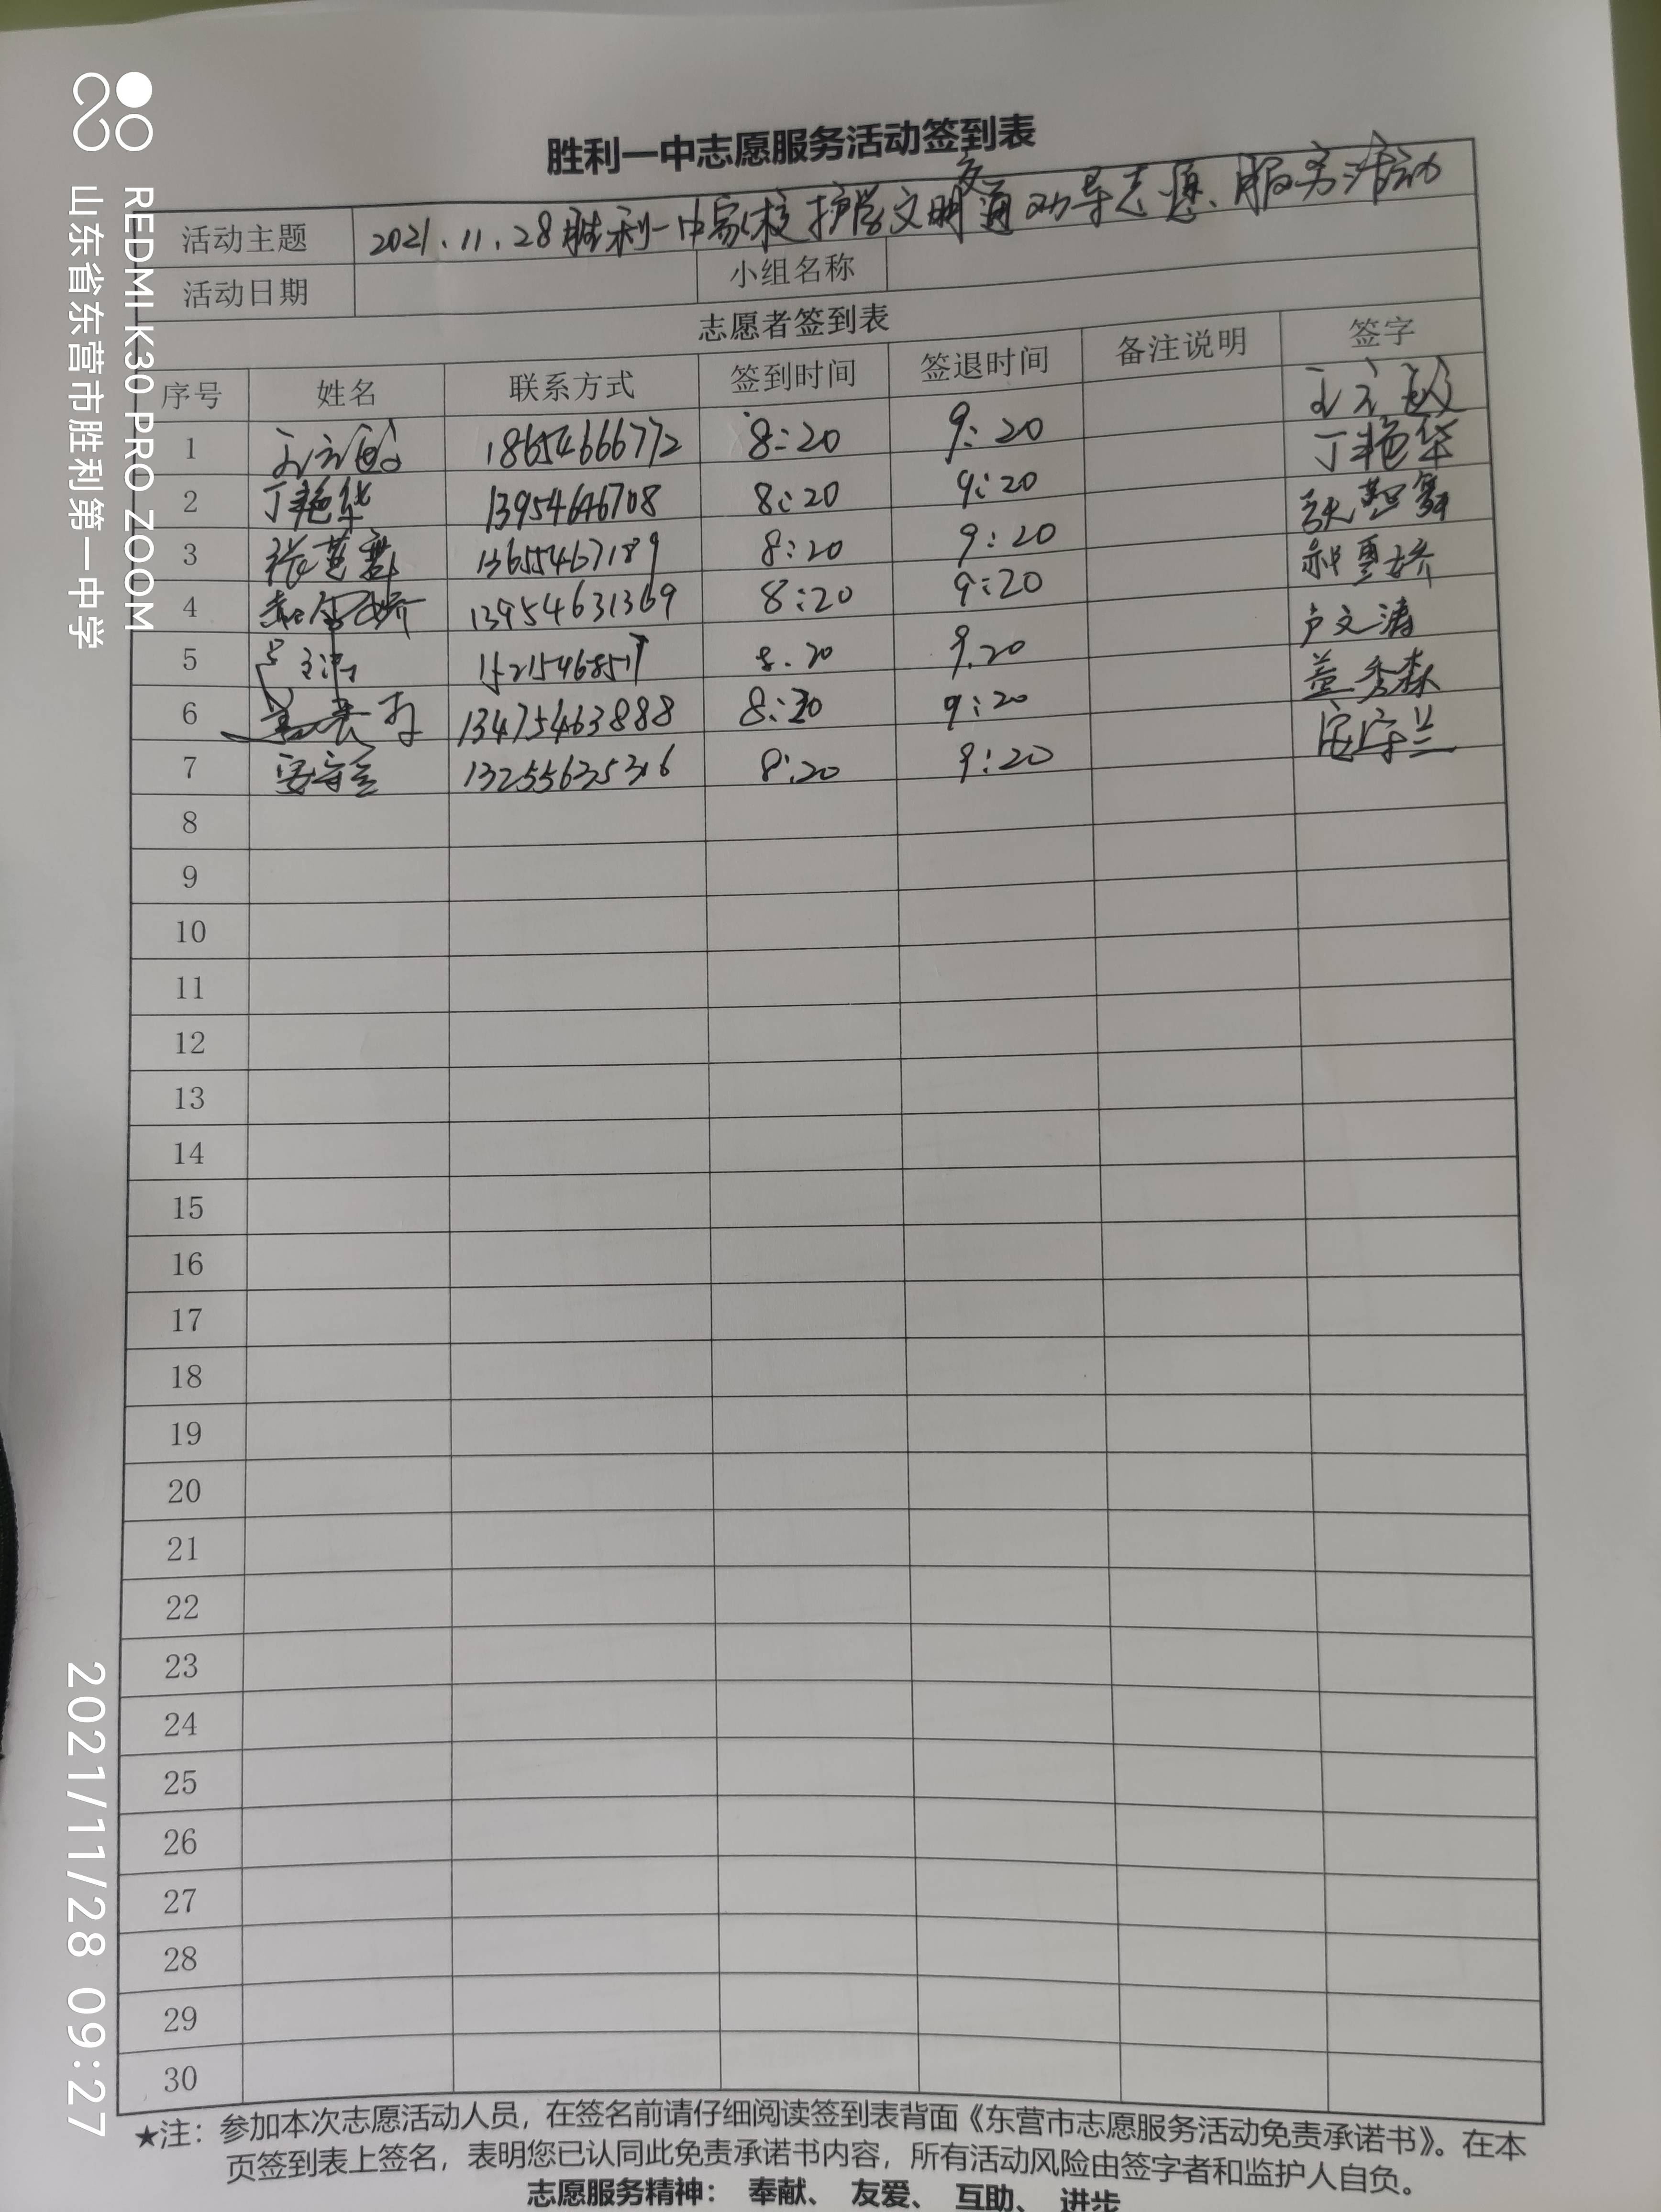 胜利一中志愿服务活动签到表
活动主题 2021.11.28胜利一中家校护学文明交通劝导志愿服务活动
活动日期 小组名称
志愿者签到表
序号 姓名 联系方式 签到时间 签退时间 备注说明 签字
1 18654666772 8:20 9:20
2 丁艳华 13954646708 8:20 9:20 丁艳华
3 1365467189 8:20 9:20
4 13954631369 8:20 9:20
5 8.20 9.20 卢文涛
6 13475463888 8:20 9:20 盖秀森
7 安守兰 13255635316 8:20 9:20 安守兰
8
9
10
11
12
13
14
15
16
17
18
19
20
21
22
23
24
25
26
27
28
29
30
★注：参加本次志愿活动人员，在签名前请仔细阅读签到表背面《东营市志愿服务活动免责承诺书》。在本
页签到表上签名，表明您已认同此免责承诺书内容，所有活动风险由签字者和监护人自负。
志愿服务精神： 奉献、 友爱、 互助、 进步
REDMI K30 PRO ZOOM
山东省东营市胜利第一中学
2021/11/28 09:27